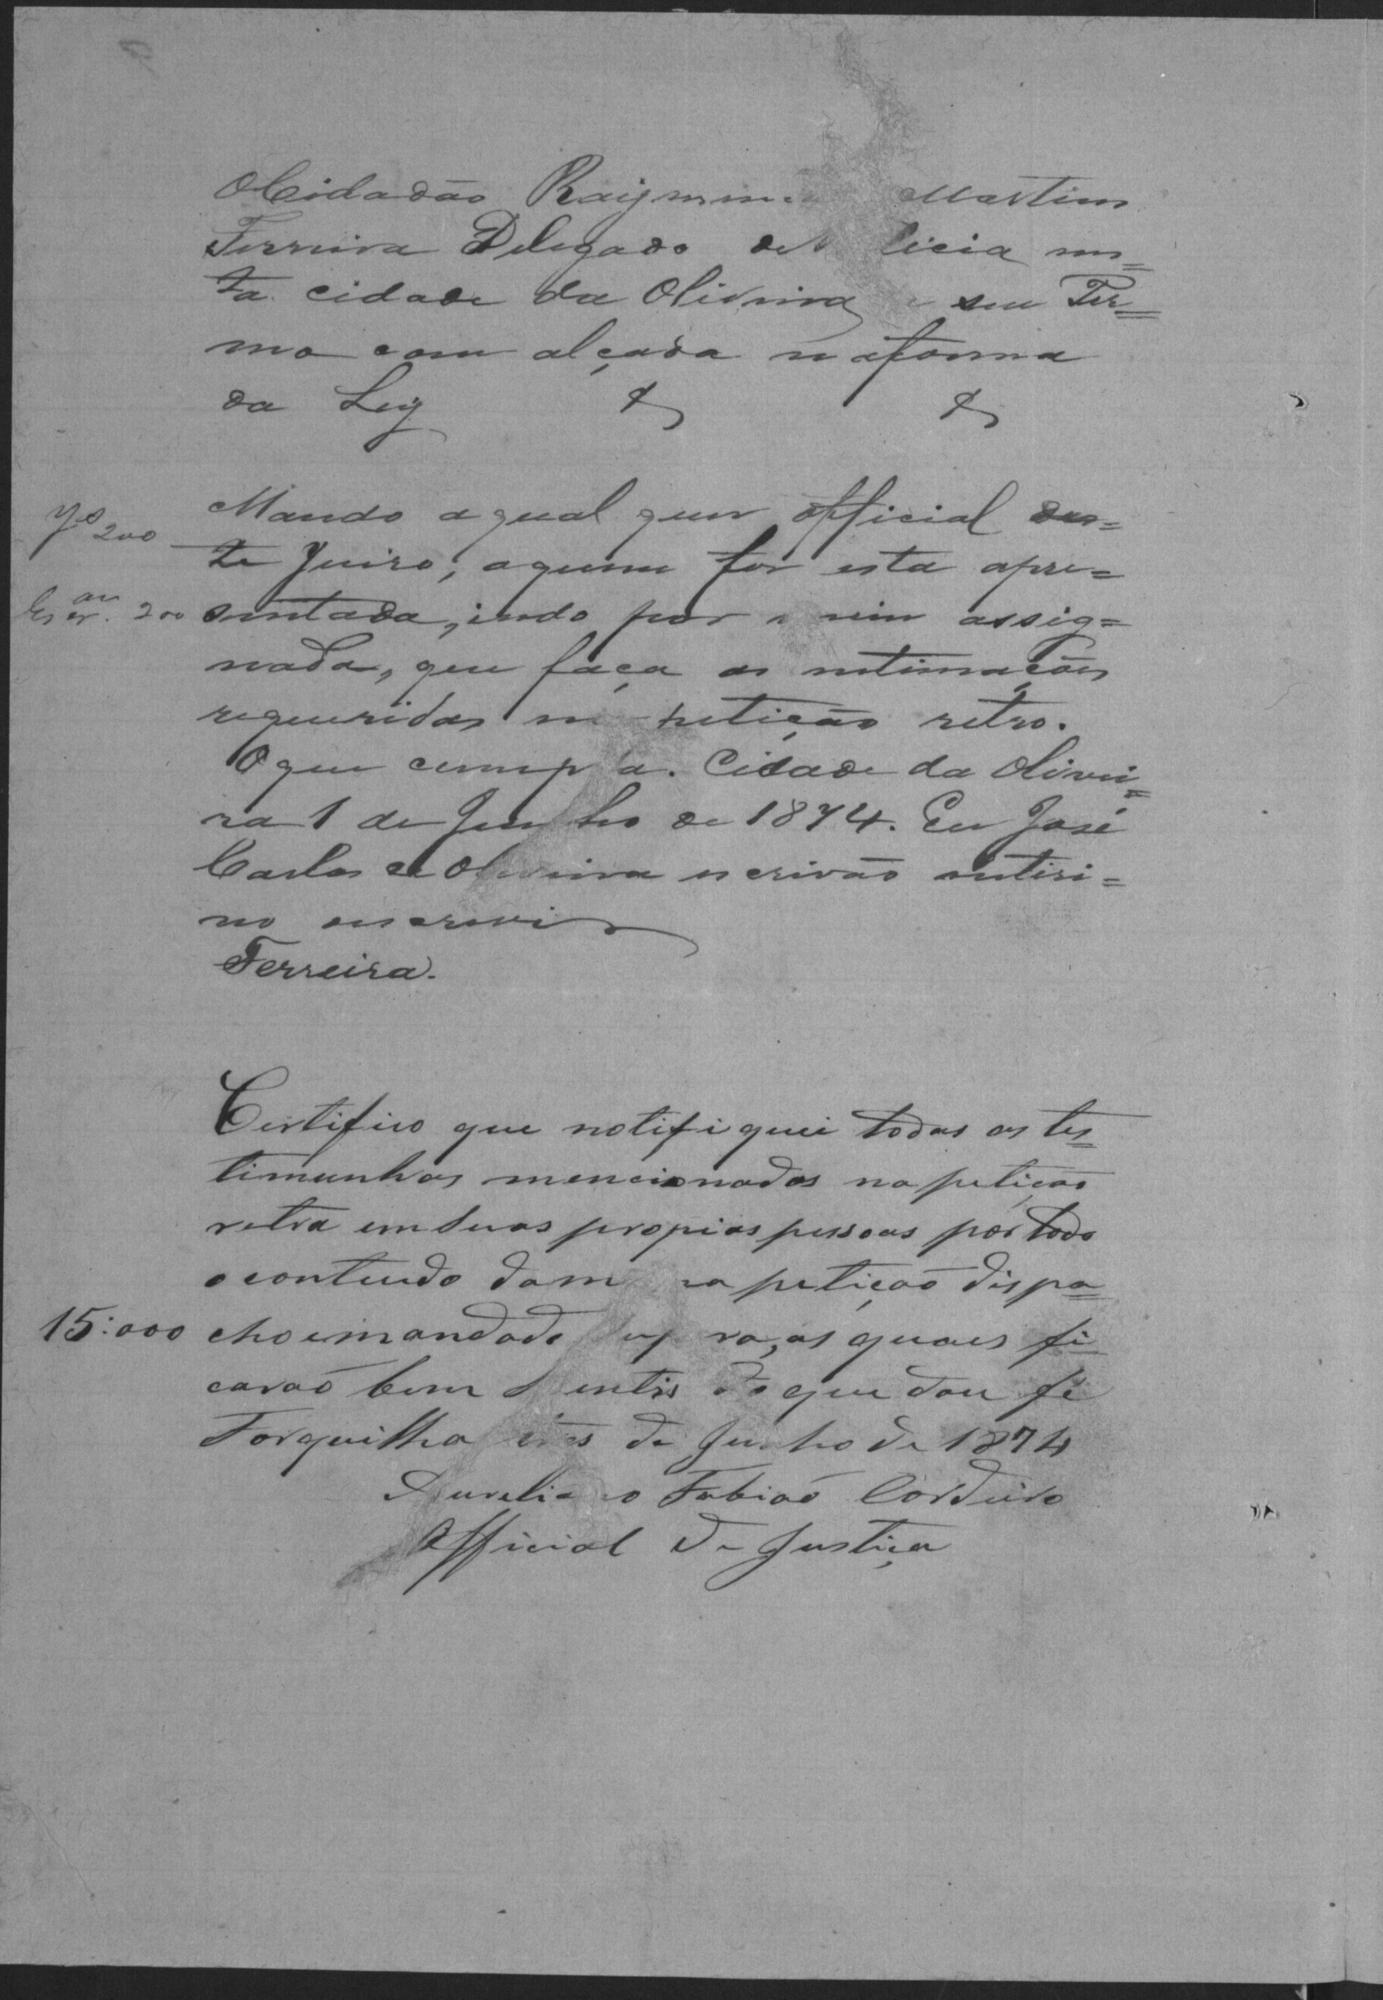 O Cidadão Raymun Martins
Ferreira Delegado de licia nes=
ta cidade da Oliveira e seu Ter=
mo com alçada na forma
da Ley & &
Mando a qual quer official des=
te Juiso, a quem for esta apre=
J.es 200
sentada, indo por mim assig=
Escr.am 200
nada, que faça as notimações
requeridas na petição retro.
O que cumpra. Cidade da Olivei=
ra 1 de Junho de 1874. Eu José
Carlos de Oliveira escrivão intiri=
no escrevi
Ferreira.
Certifico que notifiquei todas as tes=
timunhas mencionadas na petição
retra em suas propias pessoas por todo
o contiudo da m petição dispa=
15:000
cho e mandado supra, as quaes fi=
carão bem sientis do que dou fé
Forquilha tres de Junho de 1874
Aureliano Fabião Cordeiro
Official de Justiça